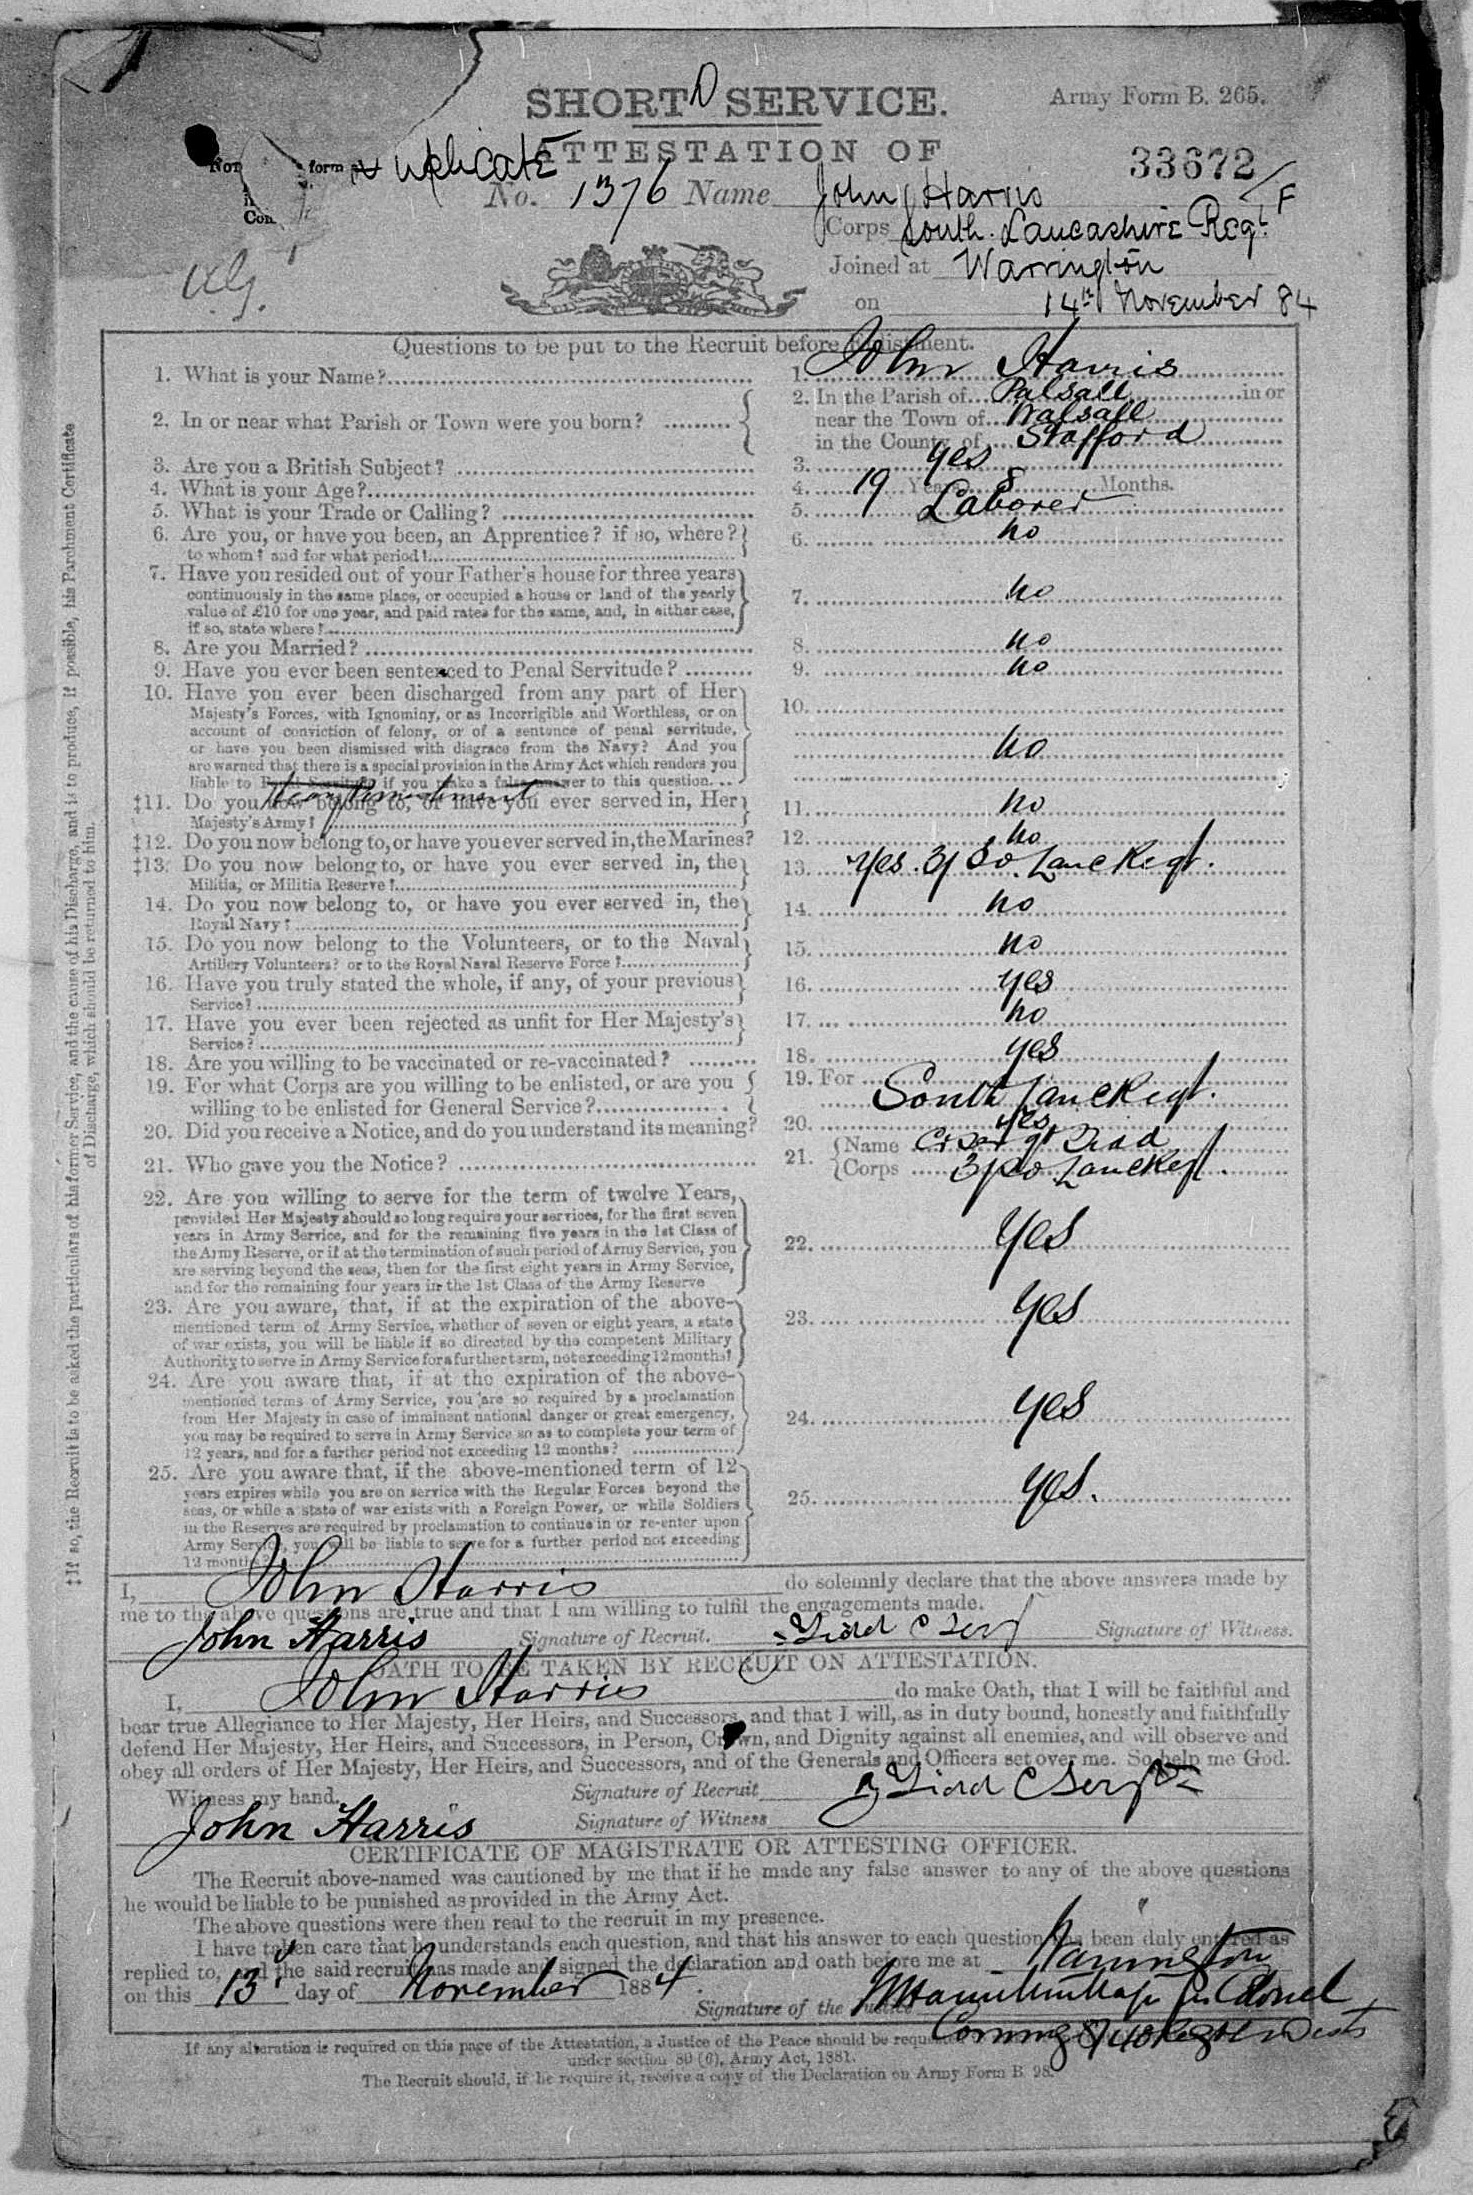 SHORT D SERVICE.
Army Form B. 265.
ATTESTATION OF
form
33672/F
No. 1376 Name John Harris
Corps South Lancashire Regt.
Joined at Warrington
on 14th November 84
Questions to be put to the Recruit before Enlistment.
1. What is your Name? 1. John Harris
2. In or near what Parish or Town were you born? 2. In the Parish of Palsall in or
near the Town of Walsall
in the County of Stafford
3. Are you a British Subject? 3. Yes
4. What is your Age? 4. 19 Years 8 Months.
5. What is your Trade or Calling? 5. Laborer
6. Are you, or have you been, an Apprentice? if so, where? 6. no
to whom? and for what period?
7. Have you resided out of your Father's house for three years
continuously in the same place, or occupied a house or land of the yearly 7. no
value of £10 for one year, and paid rates for the same, and, in either case,
if so, state where?
8. Are you Married? 8. no
9. Have you ever been sentenced to Penal Servitude? 9. no
10. Have you ever been discharged from any part of Her 10.
Majesty's Forces, with Ignominy, or as Incorrigible and Worthless, or on
account of conviction of felony, or of a sentence of penal servitude,
or have you been dismissed with disgrace from the Navy? And you no
are warned that there is a special provision in the Army Act which renders you
liable to Penal Servitude if you make a false answer to this question.
Heavy Punishment
‡11. Do you now belong to, or have you ever served in, Her 11. no
Majesty's Army?
‡12. Do you now belong to, or have you ever served in, the Marines? 12. no
‡13. Do you now belong to, or have you ever served in, the 13. Yes. 3/ So. Lanc Regt.
Militia, or Militia Reserve?
14. Do you now belong to, or have you ever served in, the 14. no
Royal Navy?
15. Do you now belong to the Volunteers, or to the Naval 15. no
Artillery Volunteers? or to the Royal Naval Reserve Force?
16. Have you truly stated the whole, if any, of your previous 16. yes
Service?
17. Have you ever been rejected as unfit for Her Majesty's 17. no
Service?
18. Are you willing to be vaccinated or re-vaccinated? 18. yes
19. For what Corps are you willing to be enlisted, or are you 19. For
willing to be enlisted for General Service? South Lanc Regt.
20. Did you receive a Notice, and do you understand its meaning? 20. yes
21. Who gave you the Notice? 21. Name
Corps 3/ So Lanc Regt.
22. Are you willing to serve for the term of twelve Years,
provided Her Majesty should so long require your services, for the first seven
years in Army Service, and for the remaining five years in the 1st Class of
the Army Reserve, or if at the termination of such period of Army Service, you 22. Yes
are serving beyond the seas, then for the first eight years in Army Service,
and for the remaining four years in the 1st Class of the Army Reserve
23. Are you aware, that, if at the expiration of the above-
mentioned term of Army Service, whether of seven or eight years, a state 23. Yes
of war exists, you will be liable if so directed by the competent Military
Authority to serve in Army Service for a further term, not exceeding 12 months?
24. Are you aware that, if at the expiration of the above-
mentioned terms of Army Service, you are so required by a proclamation
from Her Majesty in case of imminent national danger or great emergency, 24. yes
you may be required to serve in Army Service so as to complete your term of
12 years, and for a further period not exceeding 12 months?
25. Are you aware that, if the above-mentioned term of 12
years expires while you are on service with the Regular Forces beyond the 25. yes.
seas, or while a state of war exists with a Foreign Power, or while Soldiers
in the Reserves are required by proclamation to continue in or re-enter upon
Army Service, you will be liable to serve for a further period not exceeding
12 months?
‡ If so, the Recruit is to be asked the particulars of his former Service, and the cause of his Discharge, and is to produce, if possible, his Parchment Certificate
of Discharge, which should be returned to him.
I, John Harris do solemnly declare that the above answers made by
me to the above questions are true and that I am willing to fulfil the engagements made.
John Harris Signature of Recruit. Signature of Witness.
OATH TO BE TAKEN BY RECRUIT ON ATTESTATION.
I, John Harris do make Oath, that I will be faithful and
bear true Allegiance to Her Majesty, Her Heirs, and Successors, and that I will, as in duty bound, honestly and faithfully
defend Her Majesty, Her Heirs, and Successors, in Person, Crown, and Dignity against all enemies, and will observe and
obey all orders of Her Majesty, Her Heirs, and Successors, and of the Generals and Officers set over me. So help me God.
Witness my hand. Signature of Recruit
John Harris Signature of Witness
CERTIFICATE OF MAGISTRATE OR ATTESTING OFFICER.
The Recruit above-named was cautioned by me that if he made any false answer to any of the above questions
he would be liable to be punished as provided in the Army Act.
The above questions were then read to the recruit in my presence.
I have taken care that he understands each question, and that his answer to each question has been duly entered as
replied to, and the said recruit has made and signed the declaration and oath before me at Warrington
on this 13 day of November 1884.
Signature of the Justice Colonel
If any alteration is required on this page of the Attestation, a Justice of the Peace should be
under section 80 (6), Army Act, 1881.
The Recruit should, if he require it, receive a copy of the Declaration on Army Form B. 98.